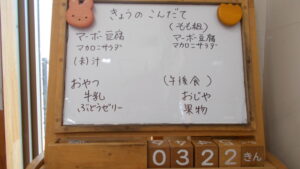 きょうの こんだて
マーボー豆腐
マカロニサラダ
(ま)汁
おやつ
牛乳
ぶどうゼリー
(もも組)
マーボー豆腐
マカロニサラダ
(午後食)
おじや
果物
0322きん